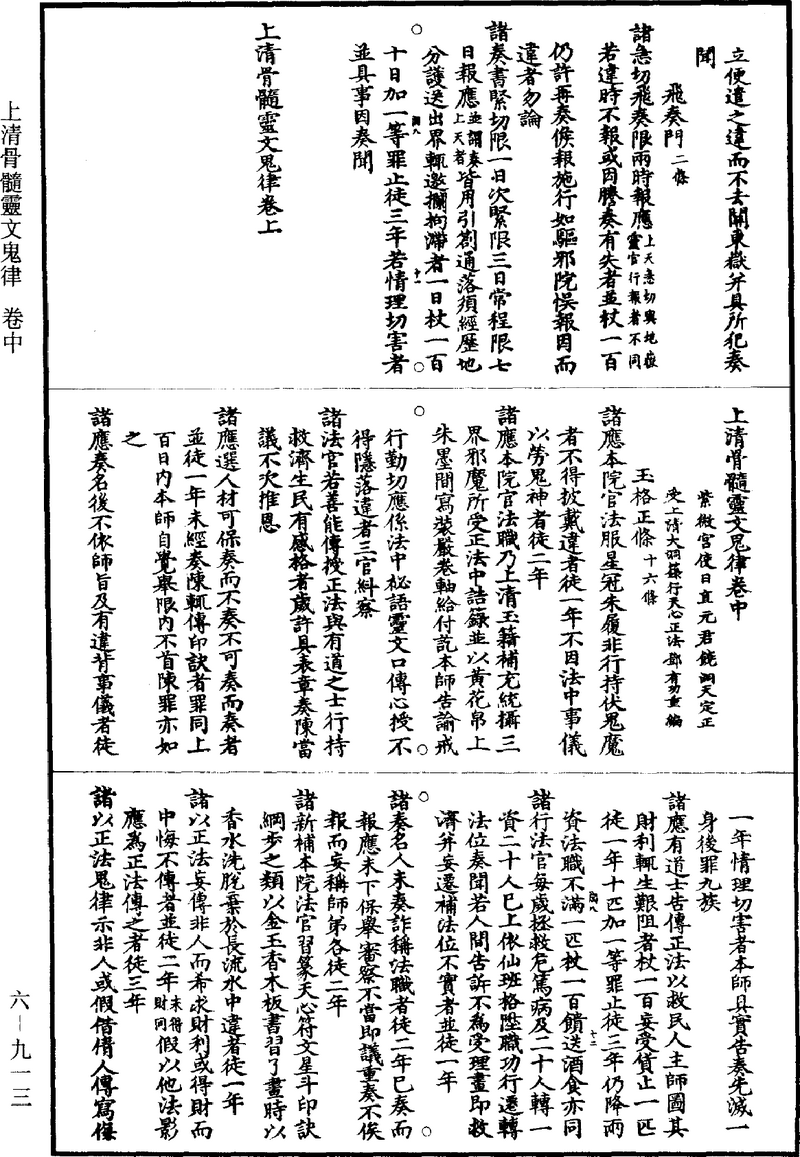 立便遣之違而不去關東嶽并具所犯奏
聞
飛奏門二條
諸急切飛奏限兩時報應上天急切與地嶽靈官行報者不同
若違時不報或因謄奏有失者並杖一百
仍許再奏候報施行如驅邪院悞報因而
違者勿論
諸奏書緊切限一日次緊限三日常程限七
日報應並謂奏上天者皆用引劄通落須經歷地
分護送出界輒邀攔拘滯者一日杖一百
十日加一等罪止徒三年若情理切害者
並具事因奏聞
上清骨髓靈文鬼律卷上
上清骨髓靈文鬼律卷中
紫微宮使日直元君饒洞天定正
受上清大洞籙行天心正法鄧有功重編
玉格正條十六條
諸應本院官法服星冠朱履非行持伏鬼魔
者不得披戴違者徒一年不因法中事儀
以勞鬼神者徒二年
諸應本院官法職乃上清玉籍補充統攝三
界邪魔所受正法中誥籙並以黃花帛上
朱墨間寫裝嚴卷軸給付訖本師告諭戒
行勤切應係法中祕語靈文口傳心授不
得隱落違者三官糾察
諸法官若善能傳授正法與有道之士行持
救濟生民有感格者歲許具表章奏陳當
議不次推恩
諸應選人材可保奏而不奏不可奏而奏者
並徒一年未經奏陳輒傳印訣者罪同上
百日內本師自覺舉限內不首陳罪亦如
之
諸應奏名後不依師旨及有違背事儀者徒
一年情理切害者本師具實告奏先滅一
身後罪九族
諸應有道士告傳正法以救民人主師圖其
財利輒生艱阻者杖一百妄受貨止一匹
徒一年十匹加一等罪止徒三年仍降兩
資法職不滿一匹杖一百饋送酒食亦同
諸行法官每歲拯救危篤病及二十人轉一
資二十人已上依仙班格陞職功行遷轉
法位奏聞若人間告訴不為受理畫即救
濟并妄遷補法位不實者並徒一年
諸奏名人未奏詐稱法職者徒二年已奏而
報應未下保舉審察不當即議重奏不俟
報而妄稱師第各徒二年
諸新補本院法官習篆天心符文星斗印訣
綱步之類以金玉香木板書習了畫時以
香水洗脫棄於長流水中違者徒一年
諸以正法妄傳非人而希求財利或得財而
中悔不傳者並徒二年未得財同假以他法影
應為正法傳之者徒三年
諸以正法鬼律示非人或假借倩人傳寫傷
上清骨髓靈文鬼律　卷中
六－九一三